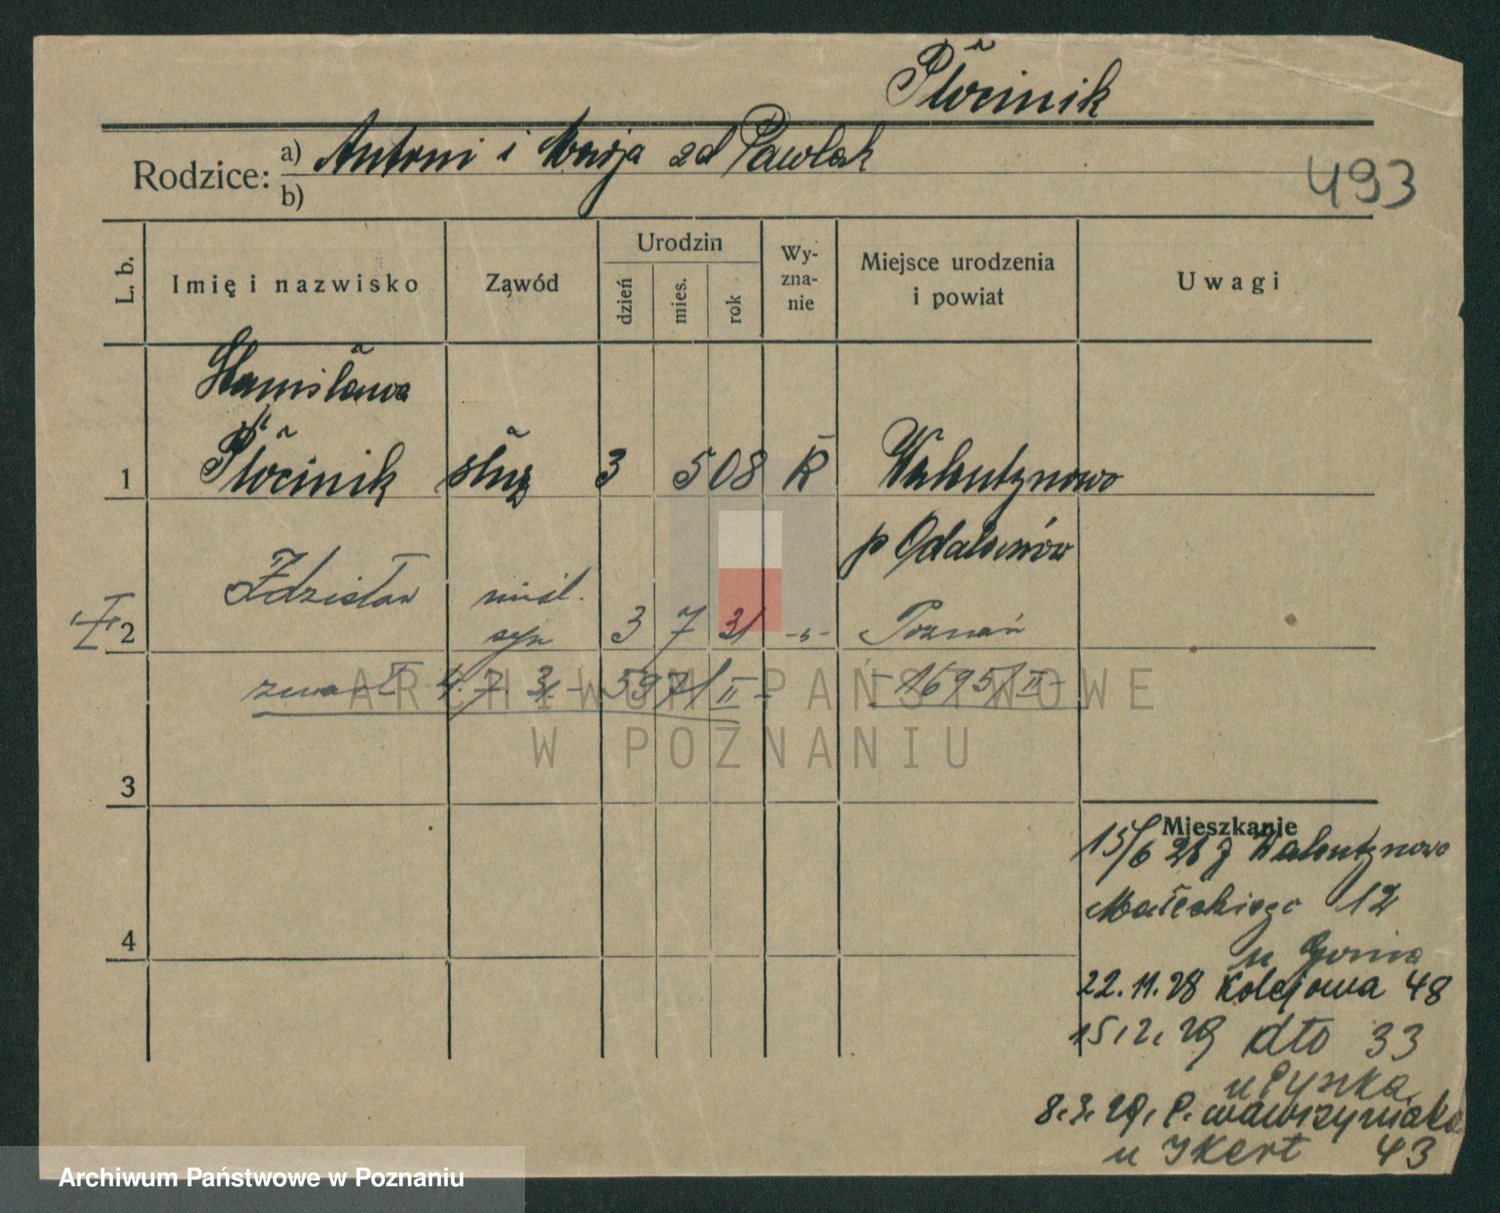 Płócinik
Rodzice: a) Antoni i Marja zd Pawlak
b)
493
L. b.
Imię i nazwisko
Ząwód
Urodzin
dzień
mies.
rok
Wy-
zna-
nie
Miejsce urodzenia
i powiat
Uwagi
Stanisława
1 Płócinik służ 3 5 08 K Walentynowo
p Odalanów
Zdzisław nieśl.
II 2 syn 3 7 31 -"- Poznań
zmarł 4. 7. 31 - 597/II - - 1695/II -
3
4
Mieszkanie
15/6 28 z Walentynowo
Małeckiego 12
u Gonia
22.11.28 Kolejowa 48
15.2.29 dto 33
u Pyszka
8.3.29. P. Wawrzyniaka
u Ikert 43
ARCHIWUM PAŃSTWOWE
W POZNANIU
Archiwum Państwowe w Poznaniu